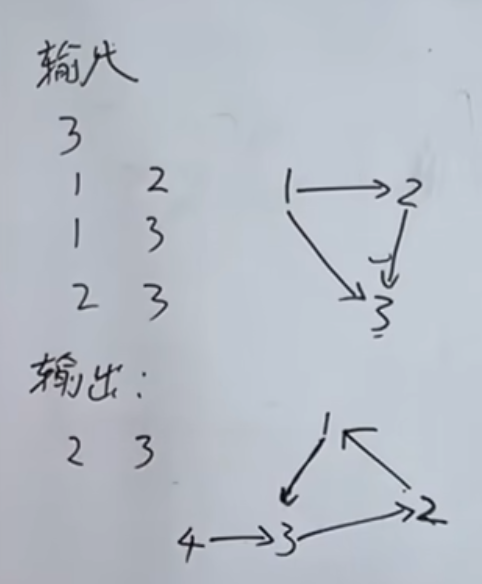 输入
3
1 2
1 3
2 3
输出：
2 3
1 2
3
1
4 3 2